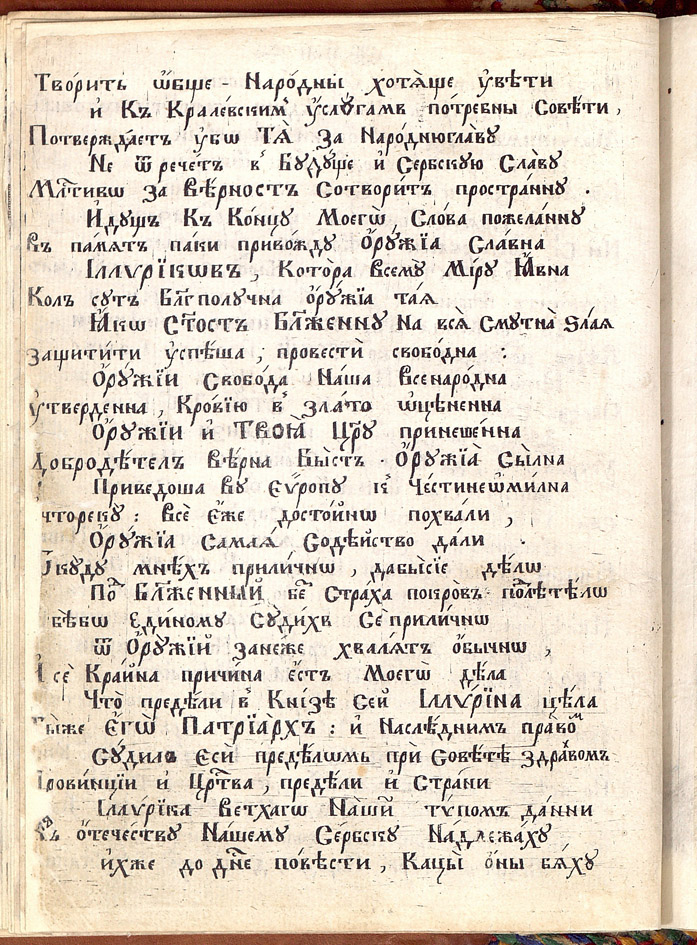 Тво́рить ѡ҆́бще - Наро́дны хотѧ́ще ᲂу҆вѣ́ти
и҆́ Къ Крале́вскимъ ᲂу҆слꙋ́гамъ потре́бны Совѣ́ти ,
Потвержда́етъ ᲂу҆́бѡ ТѦ̀ За Наро́днюглавꙋ
Не ѿ рече́тъ в̾ Бꙋдꙋ́ще и҆́ Се́рбскꙋю Сла́вꙋ
Мл҃тивѡ за вѣ́рностъ Сотвори́тъ простра́ннꙋ .
И҆́дꙋщъ Къ Ко́нцꙋ Моегѡ̀ Сло́ва пожела́ннꙋ
Въ па́мѧтъ па́ки приво́ждꙋ Ѻ҆рꙋ́жїа Сла́вна
І҆ллѵ́рїкѡвъ , Кото́ра всемꙋ̀ Мі́рꙋ Ꙗ҆́вна
Колъ сꙋ́ть Бл҃гполꙋчна ѻ҆рꙋ́жїа та́ѧ
Ꙗ҆́кѡ Ст҃остъ Бл҃же́ннꙋ На всѧ̀ Смꙋ́тна̀ Ѕла́ѧ
защити́ти ᲂу҆спѣ́ша ; провестѝ свобо́дна :
Ѻ҆рꙋ́жїи Свобо́да На́ша Все наро́дна
ᲂу҆тверде́нна , Кро́вїю в̾ зла́то ѡ҆цѣ́ненна
Ѻ҆рꙋ́жїи и҆́ ТВОЙ Цр҃ꙋ прине́шенна
Добродѣ́телъ вѣ́рна Бы́стъ . Ѻ҆рꙋ́жїа Сы́лна
Приведо́ша вꙋ Еѵ҆ро́пꙋ
чторекꙋ̀ : всѐ є҆́же досто́йнѡ похва́ли ,
Ѻ҆рꙋ́жїа Самаѧ̀ Содѣ́йство да́ли .
ѿкꙋ́дꙋ мнѣ́хъ прили́чнѡ , дабы́сїе дѣ́лѡ
По҆ Бл҃же́нный Стра́ха покро́въ полетѣ́лѡ
бѣ́бѡ Еди́номꙋ Сꙋди́хъ Се прили́чнѡ
ѿ Ѻ҆рꙋ́жїй зане́же хвалѧ́тъ ѻ҆бы́чнѡ ,
И҆ сѐ Кра́йна причи́на є҆́стъ Моегѡ̀ дѣ́ла
Что̀ предѣ́ли в̾ Кні́зѣ Сей І҆ллѵ́рїна цѣ́ла
Ты́же Є҆гѡ̀ Патрїа́рхъ : и҆́ Наслѣ́днимъ пра́вом
Сꙋди́лъ Есѝ предѣ́лѡмъ прѝ Совѣ́тѣ здра́вомъ
Прови́нцїи и҆́ Цр҃тва , предѣ́ли и҆́ Стра́ни
І҆ллѵ́рїка Ве́тхагѡ На́ши тѵ́помъ да́нни
Къ ѻ҆те́чествꙋ На́шемꙋ Се́рбскꙋ Надлежа́хꙋ
и҆́хже до дн҃е по́вѣсти , Кацы̀ ѻ҆́ны бѧ́хꙋ